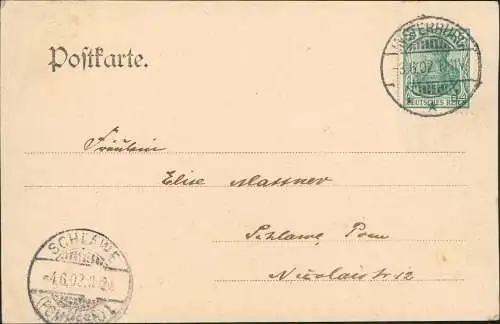 INSTERBURG
-3.6.02.
DEUTSCHES REICH
Postkarte.
Fräulein
Elise Massner
Schlawe Pom
Nicolaistr 12
SCHLAWE
-4.6.02.
(POMMERN)